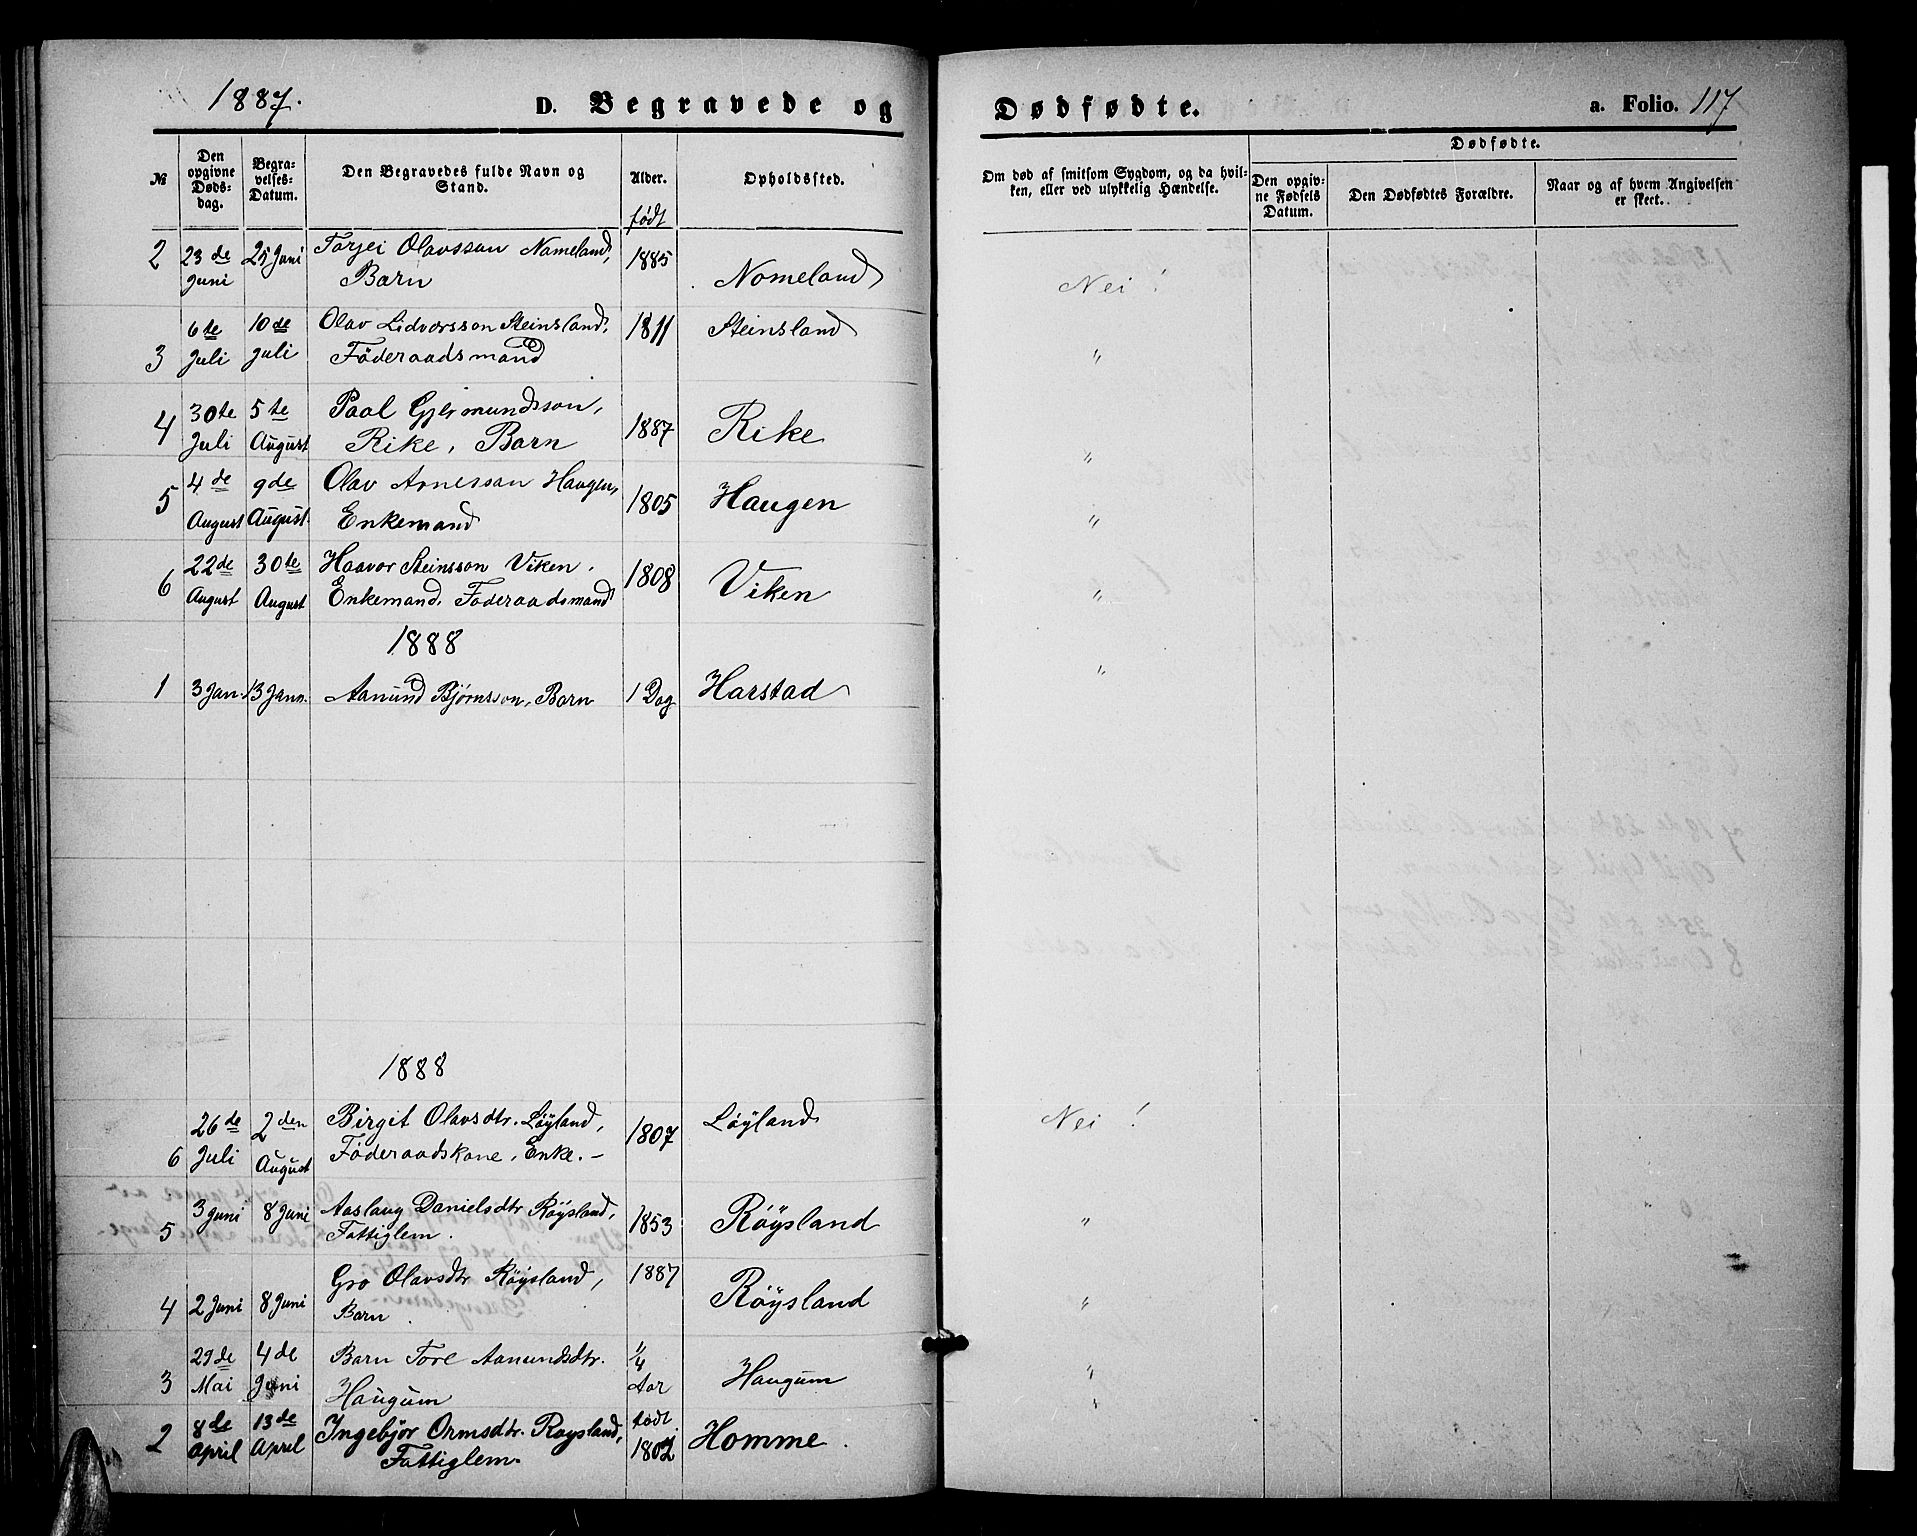 1887.
D. Begravede og
Dødfødte.
a. Folio. 117
№
Den opgivne Døds-dag.
Begra-velses-Datum.
Den Begravedes fulde Navn og Stand.
Alder.
født
Opholdssted.
Om død af smitsom Sygdom, og da hvil-
ken, eller ved ulykkelig Hændelse.
Dødfødte.
Den opgiv-ne Fødsels Datum.
Den Dødfødtes Forældre.
Naar og af hvem Angivelsen er skeet.
2 23de Juni 25 Juni Torjei Olavsson Nomeland, Barn 1885 Nomeland Nei!
3 6te Juli 10de Juli Olav Lidvorsson Steinsland, Føderaadsmand 1811 Steinsland "
4 30te Juli 5te August Paal Gjermundsson, Rike, Barn 1887 Rike "
5 4de August 9de August Olav Arnesson Haugen, Enkemand 1805 Haugen "
6 22de August 30te August Haavor Steinsson Viken. Enkemand, Føderaadsmand 1808 Viken "
1888
1 3 Jan. 13 Jann. Aanund Bjørnsson, Barn 1 Dag Harstad "
1888
6 26de Juli 2den August Birgit Olavsdtr. Løyland, Føderaadskone, Enke. – 1807 Løyland Nei!
5 3 Juni 8 Juni Aaslaug Danielsdtr Røysland, Fattiglem. 1853 Røysland "
4 2 Juni 8 Juni Gro Olavsdtr Røysland, Barn. 1887 Røysland "
3 29de Mai 4de Juni Barn Tore Aanundsdtr. Haugum 1/4 Aar Haugum "
2 8de April 13de April Ingebjør Ormsdtr. Røysland, Fattiglem. født 1802 Homme. "